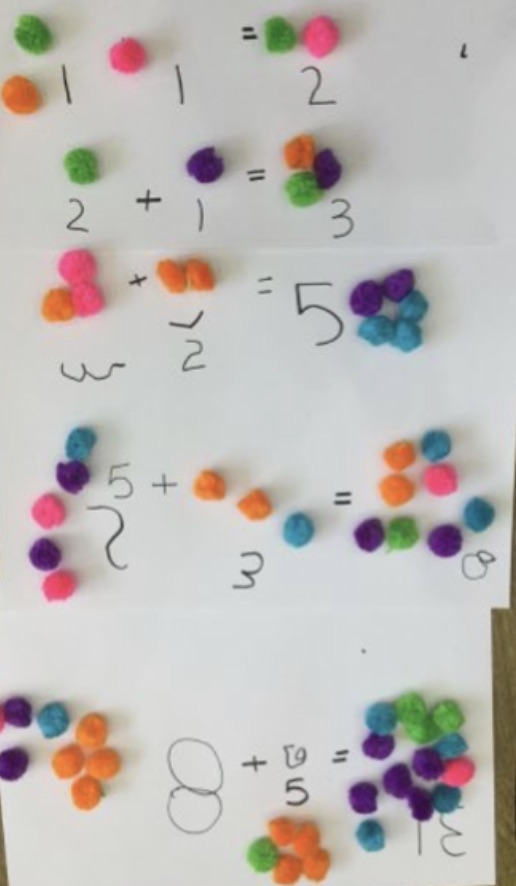 1 1 = 2
2 + 1 = 3
3 + 2 = 5
5 + 3 = 8
8 + 5 = 13